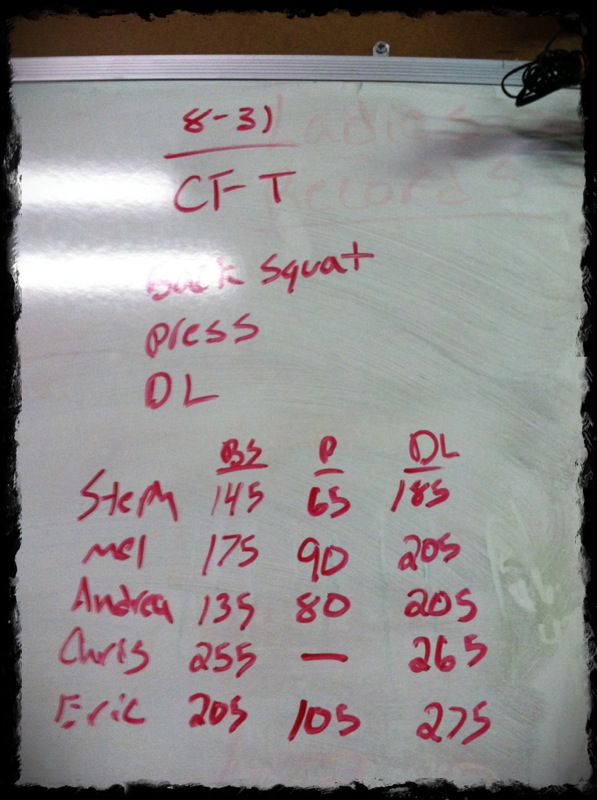 8-31
Ladies
CF-T
Records
Back Squat
press
DL
BS P DL
Steph 145 65 185
Mel 175 90 205
Andrea 135 80 205
Chris 255 — 265
Eric 205 105 275